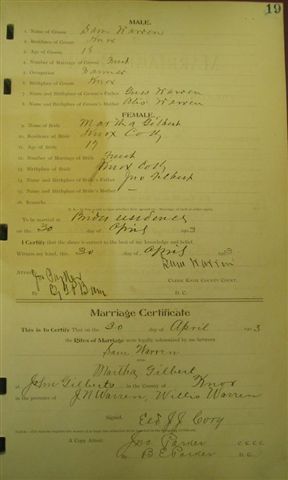 19
MALE.
1. Name of Groom Sam Warren
2. Residence of Groom Knox
3. Age of Groom
4. Number of Marriage of Groom First
5. Occupation Farmer
6. Birthplace of Groom Knox
7. Name and Birthplace of Groom's Father Warren
8. Name and Birthplace of Groom's Mother Warren
FEMALE.
9. Name of Bride Martha Gilbert
10. Residence of Bride Knox Co Ky
11. Age of Bride 17
12. Number of Marriage of Bride First
13. Birthplace of Bride Knox Co Ky
14. Name and Birthplace of Bride's Father Jno Gilbert
15. Name and Birthplace of Bride's Mother —
16. Remarks
To be married at Brides residence
on the 30 day of April 1913
I Certify that the above is correct to the best of my knowledge and belief.
Witness my hand, this 30 day of April 1913
Sam Warren
Attest: Jno Parker
CLERK KNOX COUNTY COURT.
By D.C.
Marriage Certificate
This is to Certify That on the 30 day of April 1913
the Rites of Marriage were legally solemnized by me between
Sam Warren
and
Martha Gilbert
at John Gilberts in the County of Knox
in the presence of J N Warren, Willie Warren
Signed,
Eld J J Cory
A Copy Attest:
Jno Parker C.K.C.C.
By B E Parker D.C.